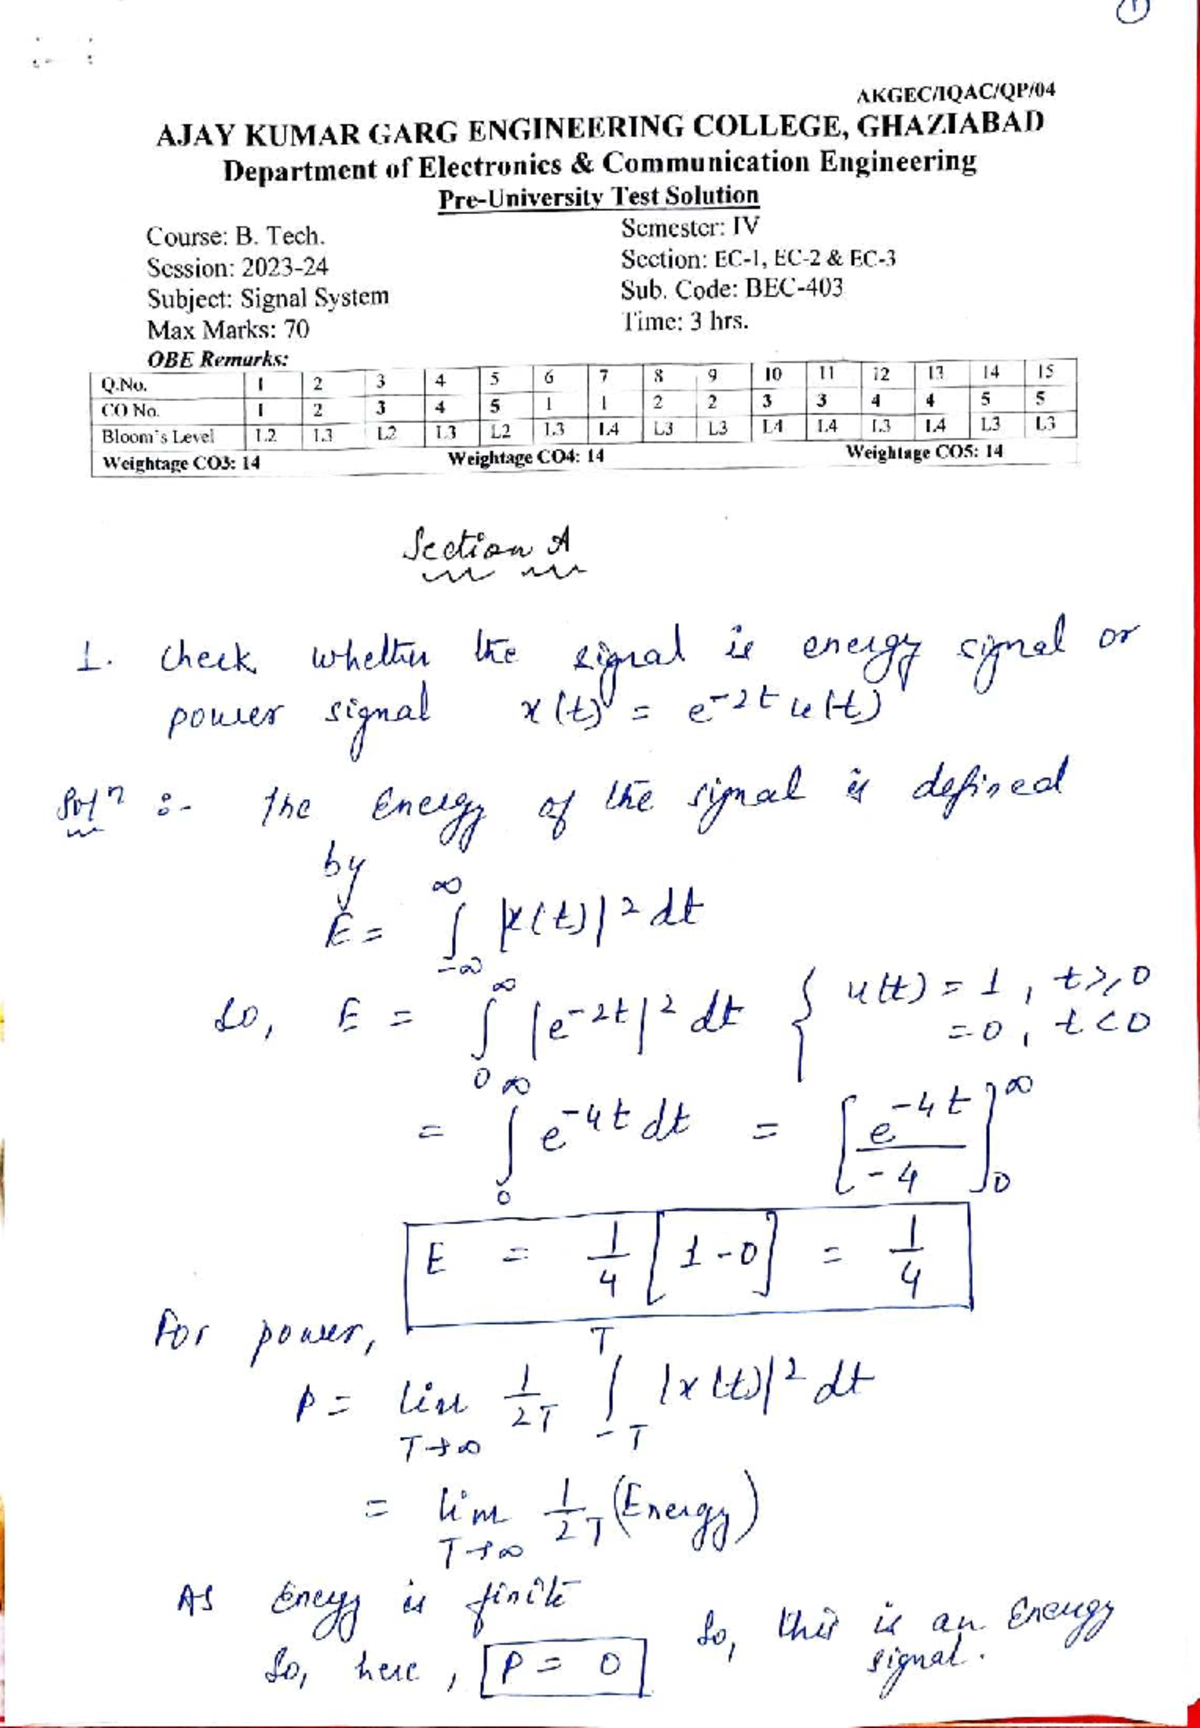 1
AKGEC/IQAC/QP/04
AJAY KUMAR GARG ENGINEERING COLLEGE, GHAZIABAD
Department of Electronics & Communication Engineering
Pre-University Test Solution
Course: B. Tech. Semester: IV
Session: 2023-24 Section: EC-1, EC-2 & EC-3
Subject: Signal System Sub. Code: BEC-403
Max Marks: 70 Time: 3 hrs.
OBE Remarks:
Q.No. 1 2 3 4 5 6 7 8 9 10 11 12 13 14 15
CO No. 1 2 3 4 5 1 1 2 2 3 3 4 4 5 5
Bloom's Level L2 L3 L2 L3 L2 L3 L4 L3 L3 L4 L4 L3 L4 L3 L3
Weightage CO3: 14 Weightage CO4: 14 Weightage CO5: 14
Section A
1. Check whether the signal is energy signal or
power signal x(t) = e^-2t u(t)
Solⁿ :- The Energy of the signal is defined
by
E = ∫_-∞^∞ |x(t)|² dt
So, E = ∫_0^∞ |e^-2t|² dt { u(t) = 1, t ≥ 0
= 0, t < 0
= ∫_0^∞ e^-4t dt = [e^-4t / -4]_0^∞
E = 1/4 [1-0] = 1/4
For power,
P = lim T→∞ 1/2T ∫_-T^T |x(t)|² dt
= lim T→∞ 1/2T (Energy)
As Energy is finite
So, here, P = 0 So, this is an Energy
signal.